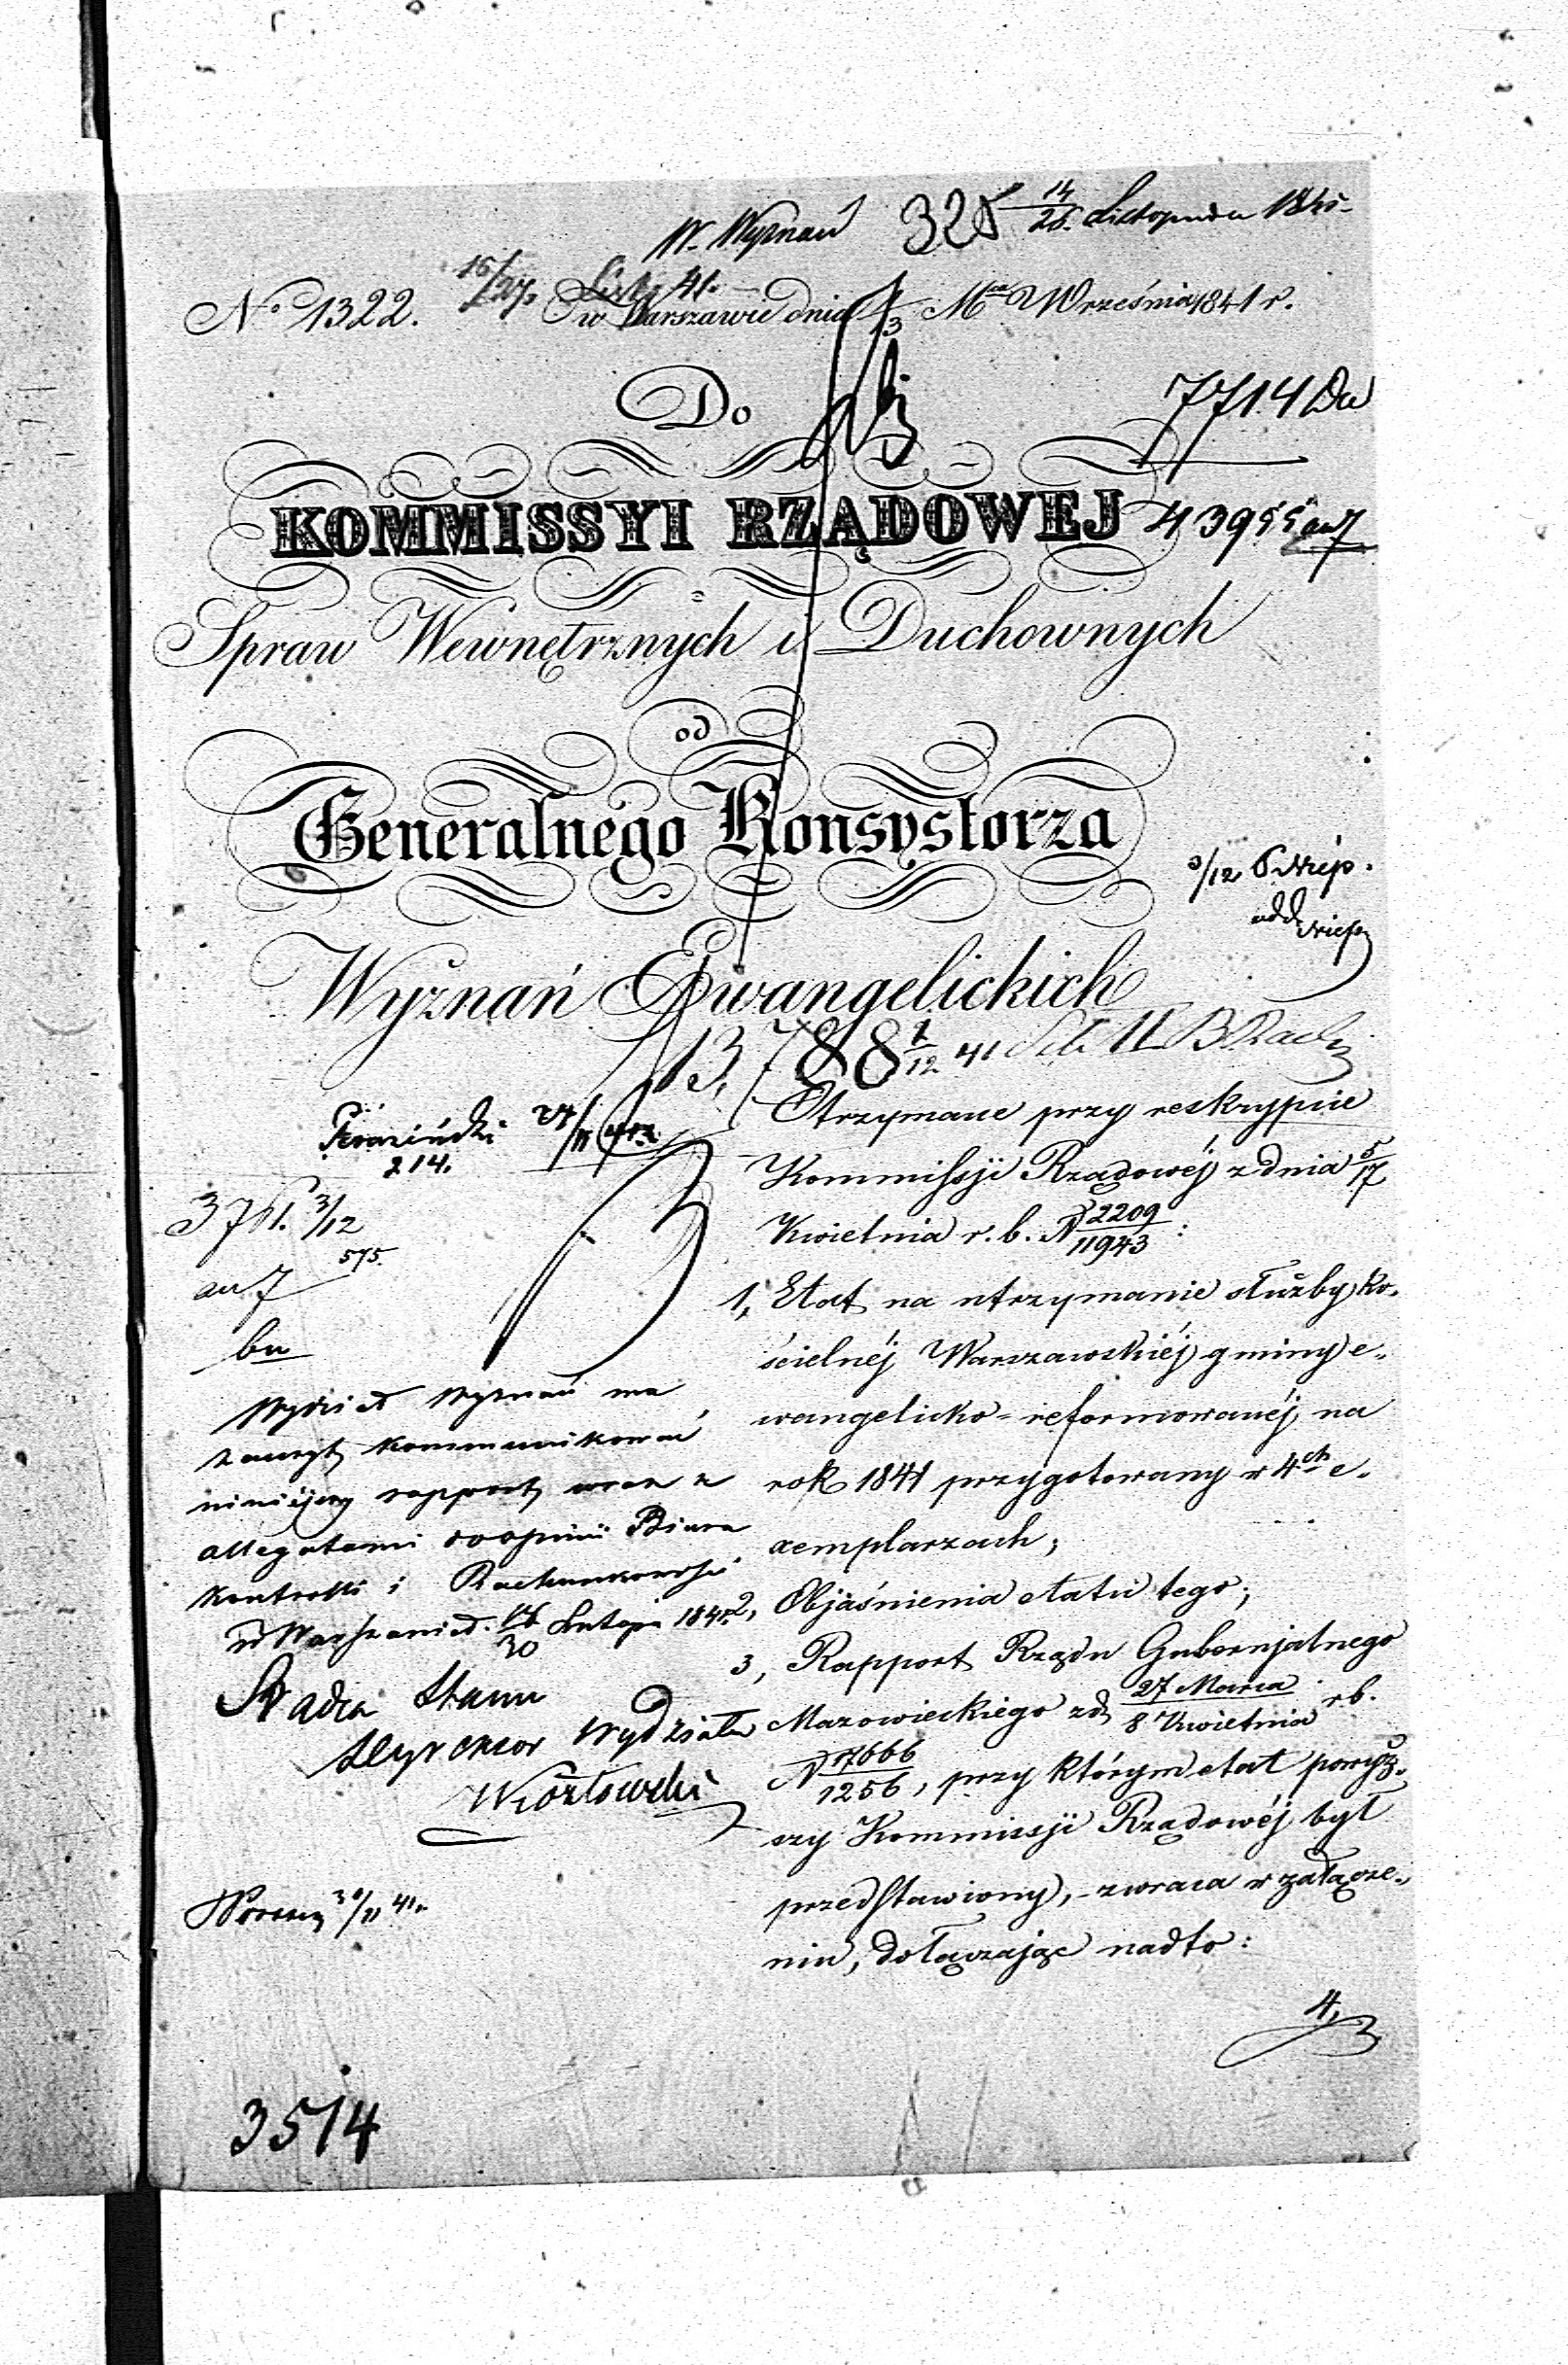 W. Wyznań 325 14/26 Listopada 184
15/27 List. 41.
No 1322. w Warszawie dnia 1/13 Mca Września 1841 r.
Do
7714 Da
KOMMISSYI RZĄDOWEJ
43955 au7
Spraw Wewnętrznych i Duchownych
od
Generalnego Konsystorza
3/12
Wyznań Ewangelickich
13,788 1/12 41
27/11
214.
3761. 3/12
575.
au 7
bu
Wydział Wyznań ma
zaszczyt kommunikować
niniejszy rapport wraz z
allegatami do opinii Biura
Kontrolli i Rachunkowości
w Warszawie d. 18/30 Listopa 1841 r.
Radca Stanu
Dyrektor Wydziału
Kozłowski
30/11 41.
Otrzymane przy reskrypcie
Kommissji Rządowéj z dnia 5/17
Kwietnia r. b. N 2209/11943:
1, Etat na utrzymanie służby ko„
ścielnéj Warszawskiéj gminy e„
wangelicko=reformowanéj na
rok 1841 przygotowany w 4ch e„
xemplarzach;
2, Objaśnienia etatu tego;
3, Rapport Rządu Gubernjalnego
Mazowieckiego z d. 27 Marca/8 Kwietnia r. b.
N 17666/1256, przy którym etat powyż„
szy Kommissji Rządowéj był
przedstawiony, - zwraca w załącze„
niu, dołączając nadto:
4,
3514